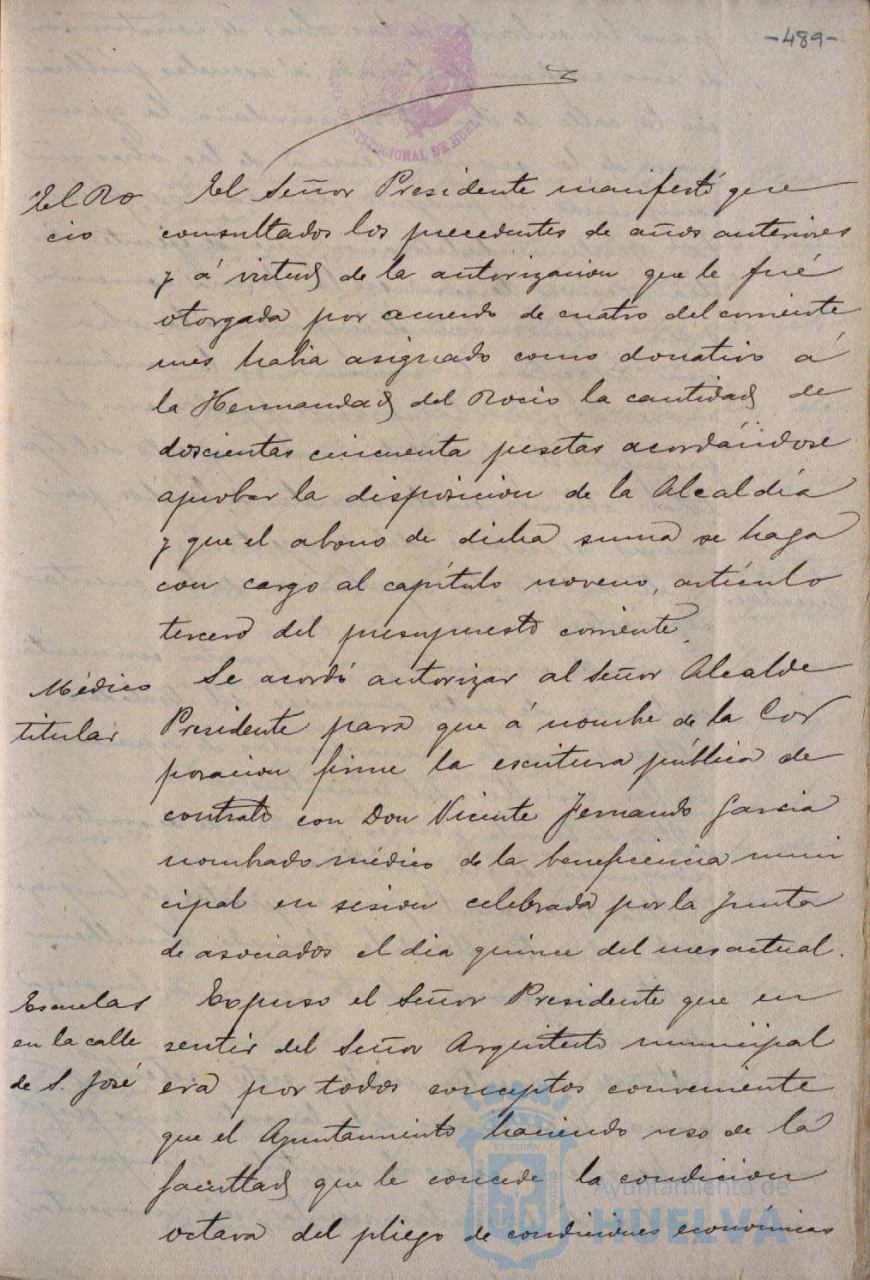 -489-
CONSTITUCIONAL DE HUELVA
El Ro
cio
El Señor Presidente manifestó que
consultados los precedentes de años anteriores
y á virtud de la autorizacion que le fué
otorgada por acuerdo de cuatro del corriente
mes habia asignado como donativo á
la Hermandad del Rocio la cantidad de
doscientas cincuenta pesetas acordándose
aprobar la disposicion de la Alcaldía
y que el abono de dicha suma se haga
con cargo al capítulo noveno, artículo
tercero del presupuesto corriente.
Médico
titular
Se acordó autorizar al Señor Alcalde
Presidente para que á nombre de la Cor
poracion firme la escritura pública de
contrato con Don Vicente Fernando Garcia
nombrado médico de la beneficencia muni
cipal en sesion celebrada por la Junta
de asociados el dia quince del mes actual.
Escuelas
en la calle
de S. José
Expuso el Señor Presidente que en
sentir del Señor Arquitecto municipal
era por todos conceptos conveniente
que el Ayuntamiento haciendo uso de la
facultad que le concede la condicion
octava del pliego de condiciones económicas
Ayuntamiento de
HUELVA